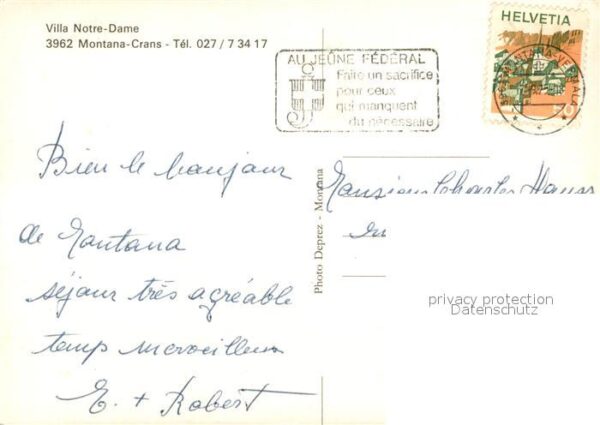 Villa Notre-Dame
3962 Montana-Crans - Tél. 027 / 7 34 17
HELVETIA
AU JEÛNE FÉDÉRAL
Faire un sacrifice
pour ceux
qui manquent
du nécessaire
Bien le bonjour
de Montana
séjour très agréable
temps merveilleux
E. + Robert
Photo Deprez - Montana
Monsieur Charles
privacy protection
Datenschutz